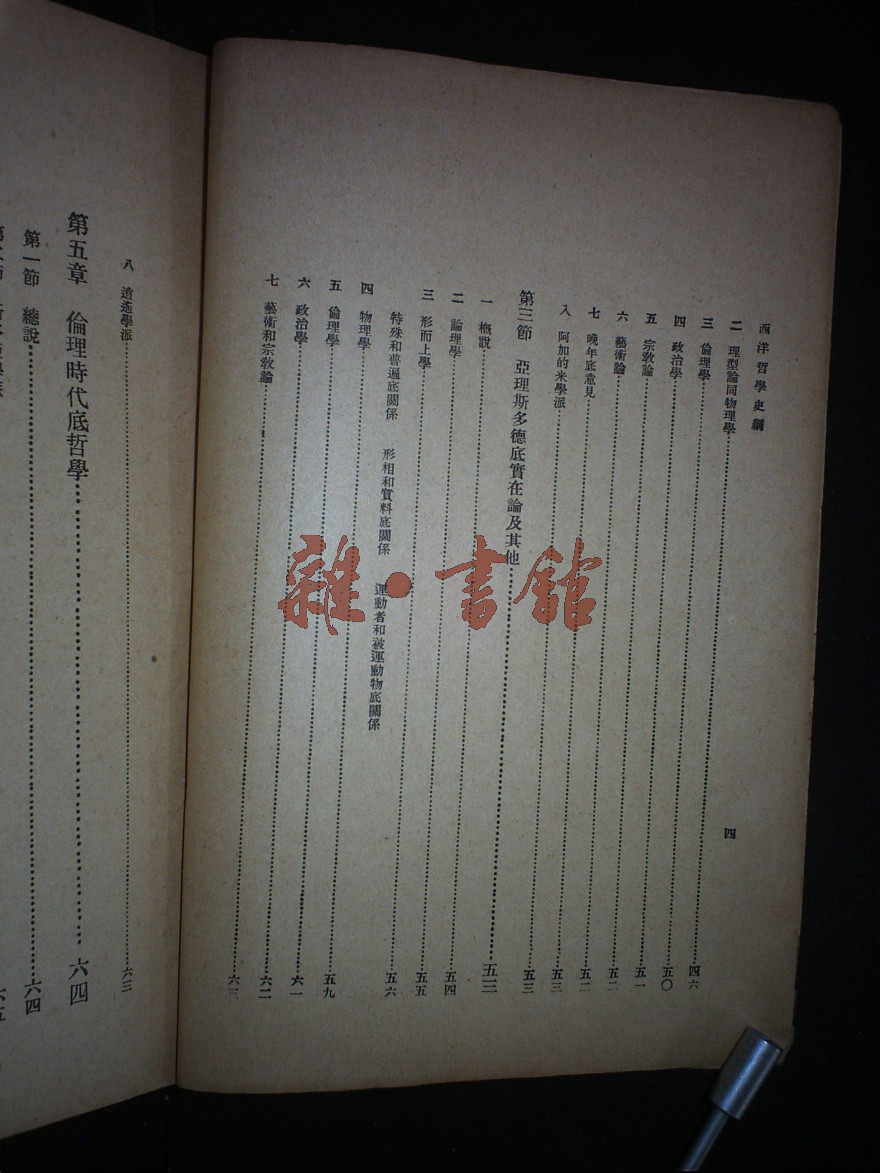 西洋哲學史綱
四
二 理型論同物理學……四六
三 倫理學……五〇
四 政治學……五一
五 宗教論……五二
六 藝術論……五二
七 晚年底意見……五三
八 阿加的米學派……五三
第三節 亞理斯多德底實在論及其他……五三
一 概說……五四
二 論理學……五五
三 形而上學……五六
特殊和普遍底關係 形相和質料底關係 運動者和被運動物底關係
四 物理學……五九
五 倫理學……六一
六 政治學……六二
七 藝術和宗教論……六三
八 逍遙學派……六三
第五章 倫理時代底哲學……六四
第一節 總說……六四
雜·書館